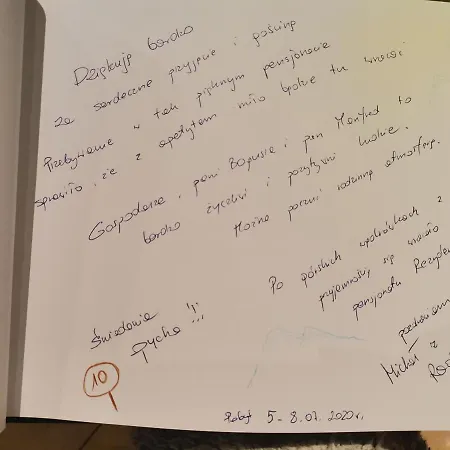 Dziękuję bardzo
za serdeczne przyjęcie i gościnę
Przebywanie w tak pięknym pensjonacie
sprawiło, że z apetytem miło będzie tu wracać
Gospodarze, pani Bogusia i pan Manfred to
bardzo życzliwi i pozytywni ludzie.
Można poczuć rodzinną atmosferę.
Po górskich wędrówkach z
przyjemnością się wracało
pensjonatu
Śniadania
pycha !!!
10
Michał z
Pobyt 5-8.07.2020r.